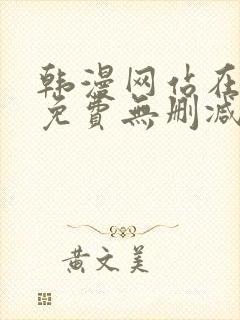 韩漫网站在
免費無删减
黄文美